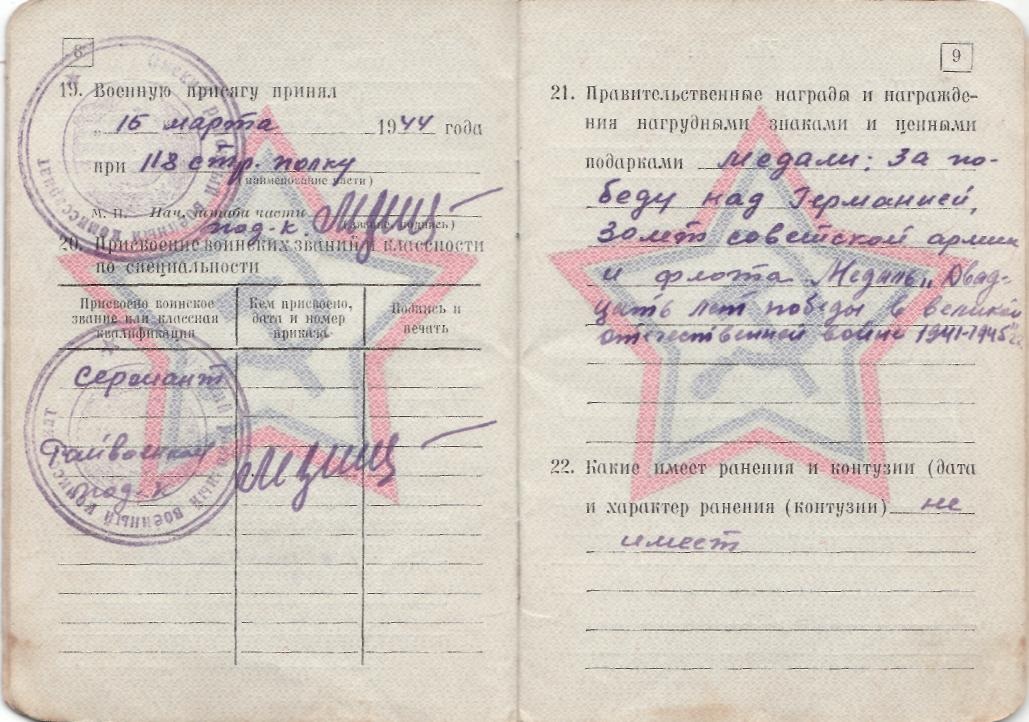 8
19. Военную присягу принял
„ 15 марта 1944 года
при 118 стр. полку
(наименование части)
М. П. Нач. штаба части
под-к.
20. Присвоение воинских званий и классности
по специальности
Присвоено воинское
звание или классная
квалификация
Кем присвоено,
дата и номер
приказа
Подпись и
печать
Сержант
Райвоенком
под-к
9
21. Правительственные награды и награжде-
ния нагрудными знаками и ценными
подарками медали: За по-
беду над Германией,
30 лет советской армии
и флота Медаль „Двад-
цать лет победы в великой
отечественной войне 1941-1945"
22. Какие имеет ранения и контузии (дата
и характер ранения (контузии) не
имеет